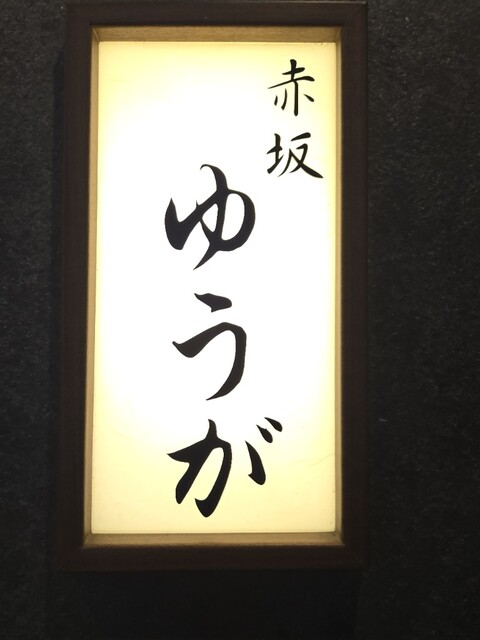 赤坂
ゆうが